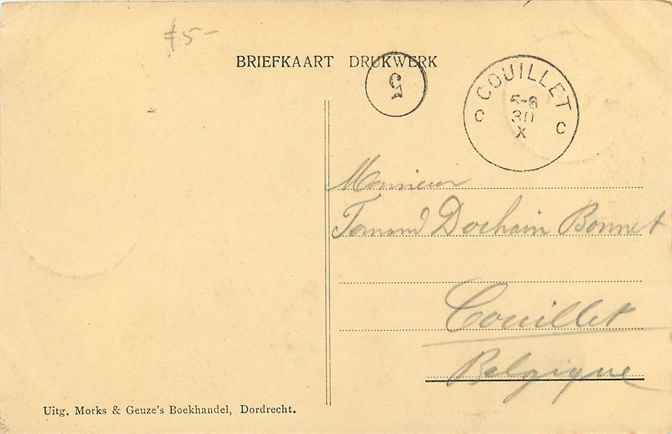 f 5-
BRIEFKAART DRUKWERK
5
COUILLET
5-6
30
X
C C
Monsieur
Dochain Bonnet
Couillet
Belgique
Uitg. Morks & Geuze's Boekhandel, Dordrecht.